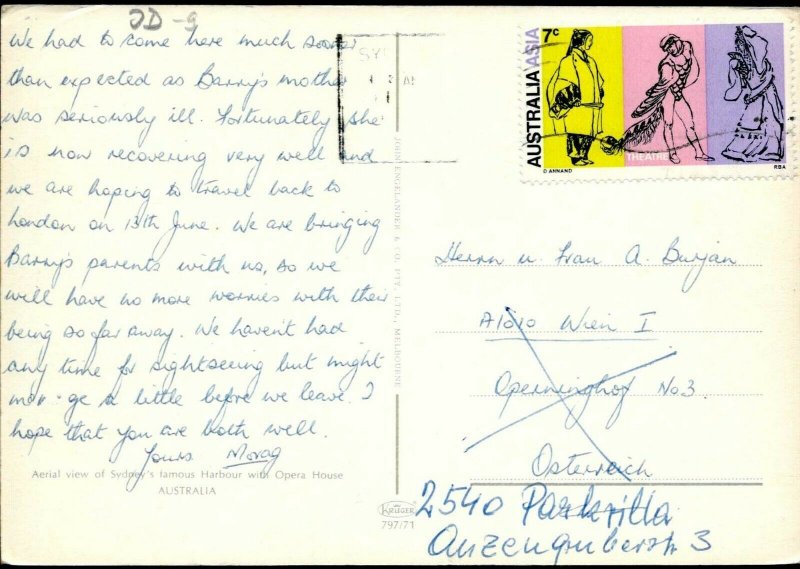 JD-9
We had to come here much sooner
than expected as Barry's mother
was seriously ill. Fortunately she
is now recovering very well and
we are hoping to travel back to
London on 13th June. We are bringing
Barry's parents with us, so we
will have no more worries with their
being so far away. We haven't had
any time for sightseeing but might
ge a little before we leave. I
hope that you are both well.
Yours Morag
Aerial view of Sydney's famous Harbour with Opera House
AUSTRALIA
JOHN ENGELANDER & CO. PTY. LTD., MELBOURNE
KRÜGER
797/71
7c
AUSTRALIA ASIA
THEATRE
D ANNAND
RBA
SY
Herrn u. Frau A. Burjan
A1010 Wien I
Operninghof No 3
Österreich
2540
Anzengruberstr 3